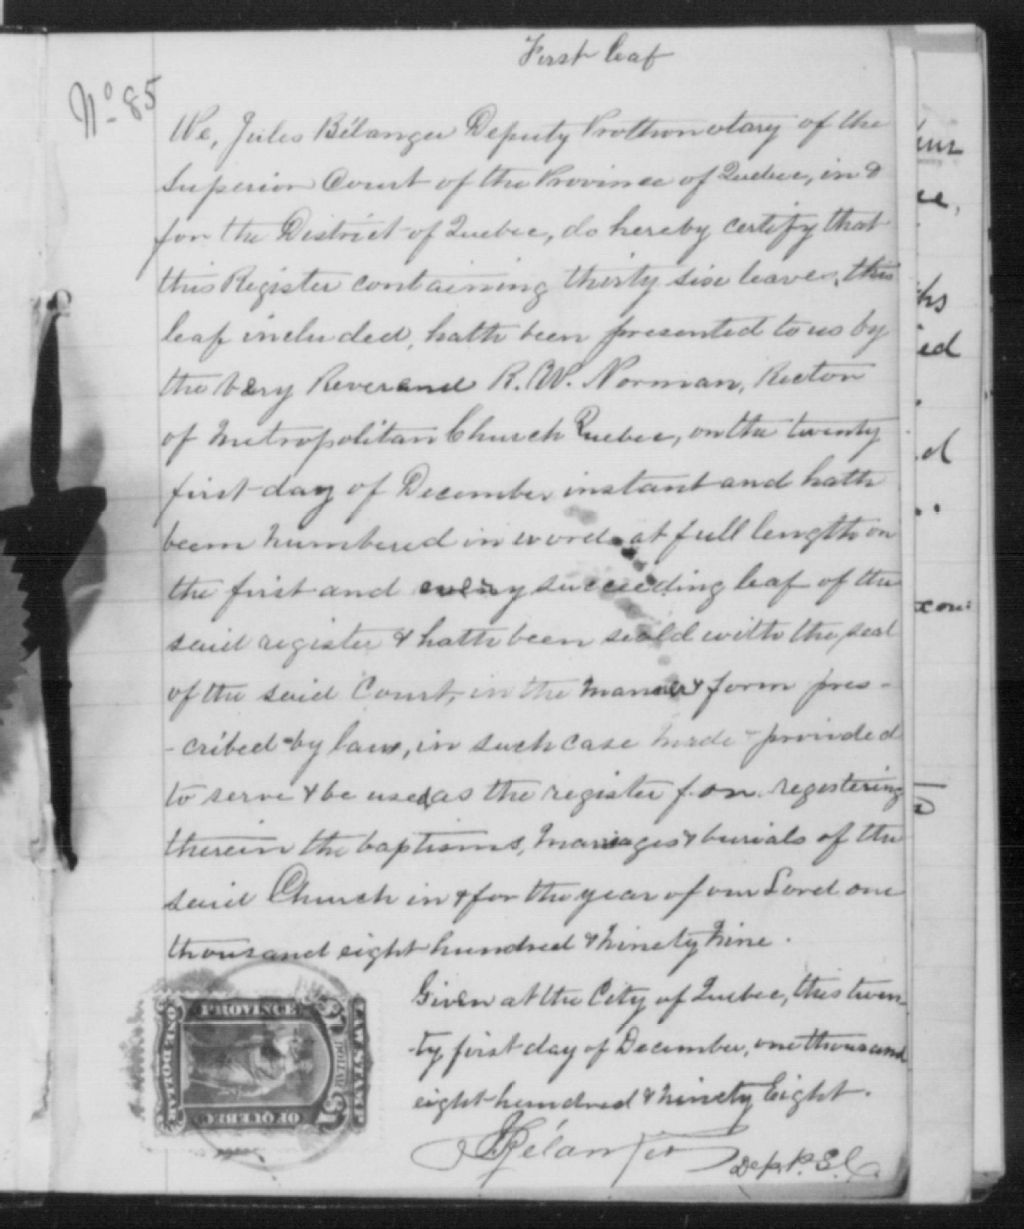 First leaf
No 85
We, Jules Bélanger Deputy Prothonotary of the
Superior Court of the Province of Quebec, in &
for the District of Quebec, do hereby certify that
this Register containing thirty six leaves, this
leaf included, hath been presented to us by
the Very Reverend R. W. Norman, Rector
of Metropolitan Church Quebec, on the twenty
first day of December instant and hath
been numbered in words at full length on
the first and every succeeding leaf of the
said register & hath been seald with the seal
of the said Court, in the manner & form pres-
-cribed by law, in such case made - provided
to serve & be used as the register for registering
therein the baptisms, marriages & burials of the
said Church in & for the year of our Lord one
thousand eight hundred & ninety nine.
Given at the City of Quebec, this twen-
-ty first day of December, one thousand
eight hundred & ninety Eight.
JBélanger
Dep. P. S. C.
PROVINCE
OF QUEBEC
LAW STAMP
ONE DOLLAR
$1
DOLLAR